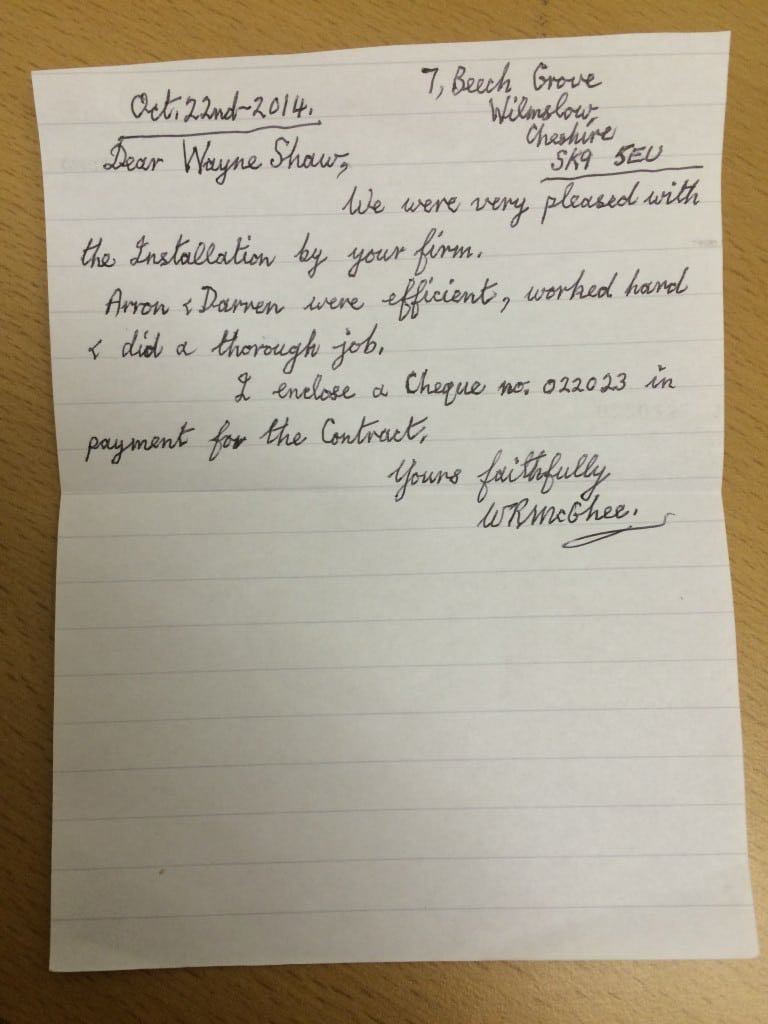 Oct. 22nd-2014.
7, Beech Grove
Wilmslow,
Cheshire
SK9 5EU
Dear Wayne Shaw,
We were very pleased with
the Installation by your firm.
Arron & Darren were efficient, worked hard
& did a thorough job.
I enclose a Cheque no. 022023 in
payment for the Contract.
Yours faithfully
WRMcGhee.